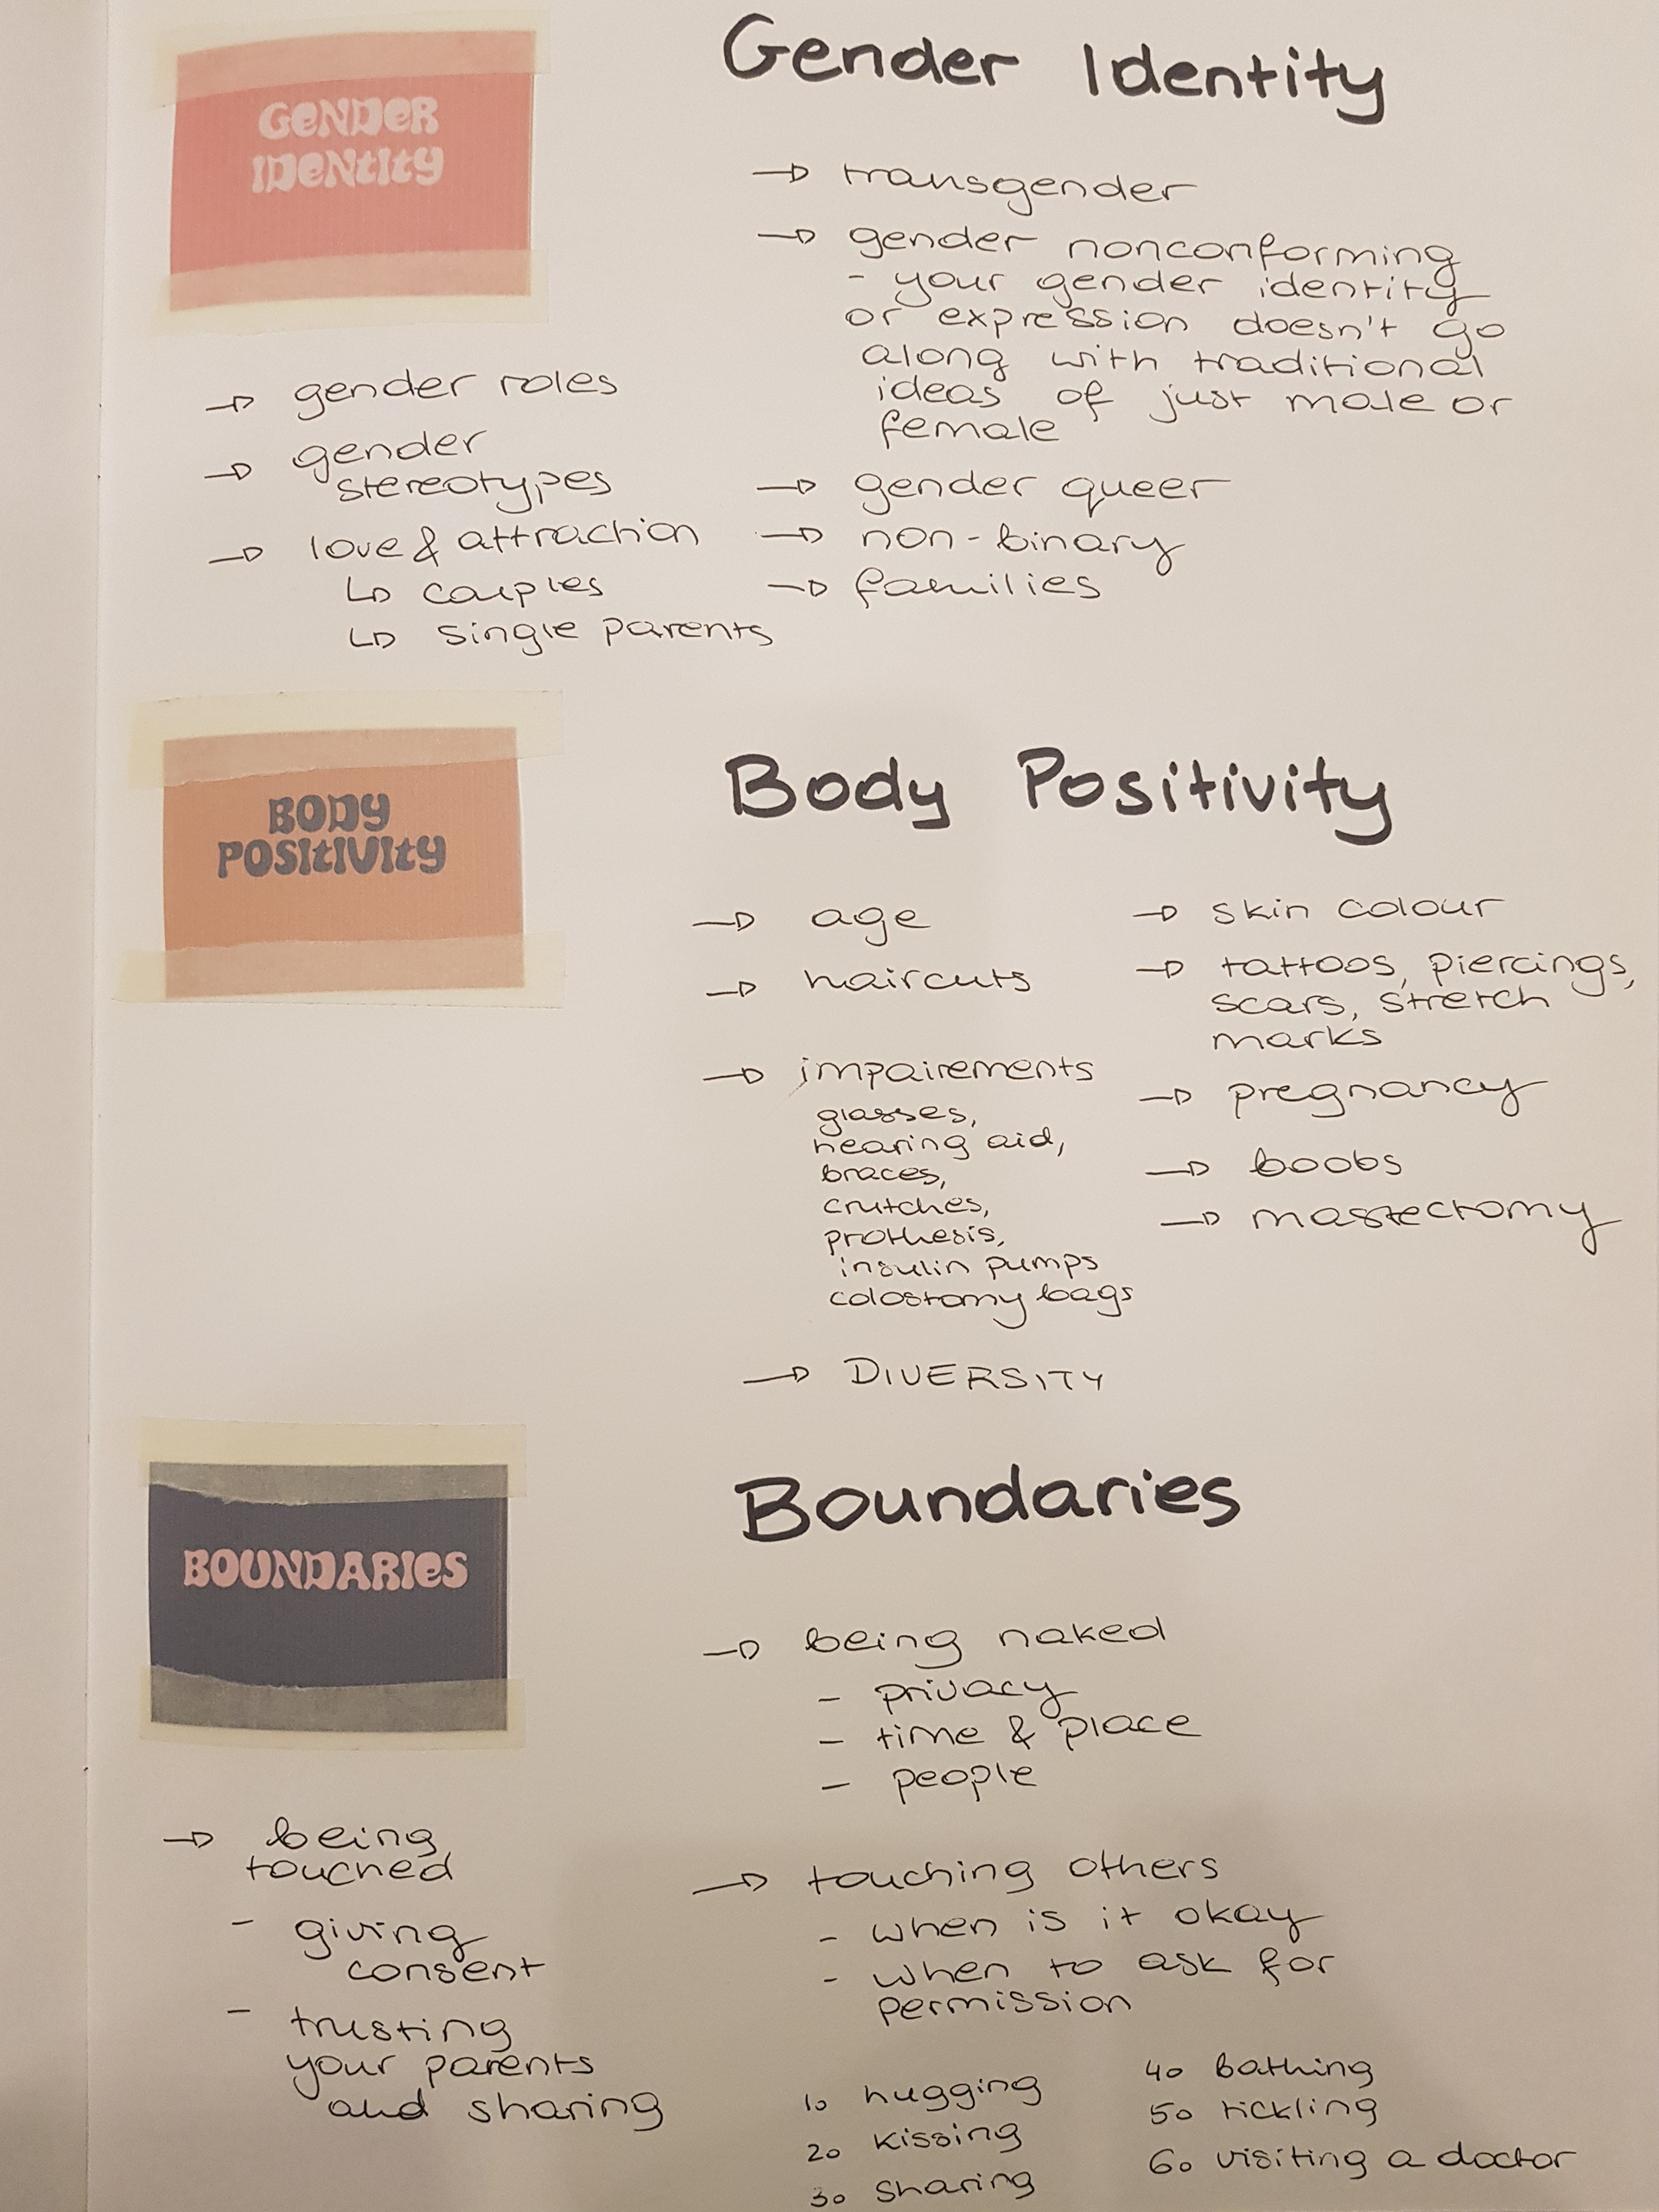 GENDER
IDENTITY
Gender Identity
→ gender roles
→ gender
stereotypes
→ love & attraction
↳ couples
↳ single parents
→ transgender
→ gender nonconforming
- your gender identity
or expression doesn't go
along with traditional
ideas of just male or
female
→ gender queer
→ non-binary
→ families
BODY
POSITIVITY
Body Positivity
→ age
→ haircuts
→ impairements
glasses,
hearing aid,
braces,
crutches,
prothesis,
insulin pumps
colostomy bags
→ DIVERSITY
→ skin colour
→ tattoos, piercings,
scars, stretch
marks
→ pregnancy
→ boobs
→ mastectomy
BOUNDARIES
Boundaries
→ being
touched
- giving
consent
- trusting
your parents
and sharing
→ being naked
- privacy
- time & place
- people
→ touching others
- when is it okay
- when to ask for
permission
1. hugging
2. kissing
3. sharing
4. bathing
5. tickling
6. visiting a doctor